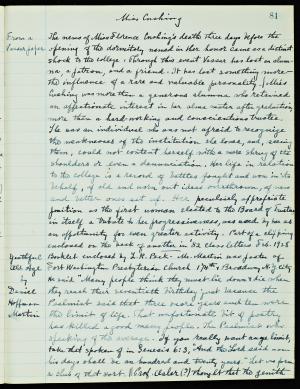 Miss Cushing
81
From a
Newspaper
The news of Miss Florence Cushing's death three days before the
opening of the dormitory named in her honor came as a distinct
shock to the college. Through this event Vassar has lost an alum-
na, a patron, and a friend. It has lost something more
the influence of a rare and valuable personality. Miss
Cushing was more than a generous alumna who retained
an affectionate interest in her alma mater after graduation,
more than a hard-working and conscientious trustee.
She was an individual who was not afraid to recognize
the weaknesses of the institution she loved, and, seeing
them, could not content herself with a mere shrug of the
shoulders or even a denunciation. Her life in relation
to the college is a record of battles fought and won in its
behalf, of old and worn out ideas overthrown, of new
and better ones set up. Her peculiarly appropriate
position as the first woman elected to the Board of Trustees
in itself a tribute to her progressiveness, was used by her as
an opportunity for even greater activity. Part of a clipping
enclosed on the back of another in '82 class letters Feb. 1928
Youthful
Old Age
by
Daniel
Hoffman
Martin
Booklet enclosed by L. R. Pack. Mr. Martin was pastor of
Fort Washington Presbyterian Church 174th & Broadway N.Y. City
He said "Many people think they must lie down & die when
they reach their seventieth birthday just because the
Psalmist said that three score years and ten were
the limit of life. That unfortunate bit of poetry
has killed a good many people. The Psalmist was
speaking of the average. If you really want age limit,
take that spoken of in Genesis 6:3, "And the Lord said
his days shall be an hundred and twenty years"
a club of that sort. Prof. thought that the zenith